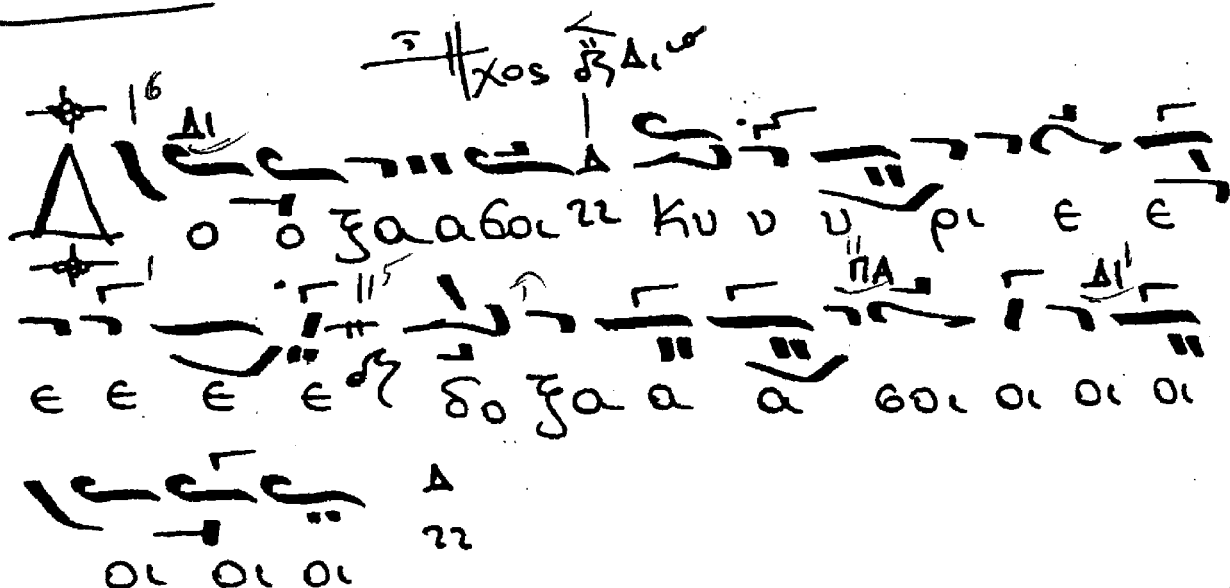 Ἦχος Δι
Δ ο ο ξα α σοι Κυ υ υ ρι ε ε
ε ε ε ε δο ξα α α σοι οι οι οι
οι οι οι